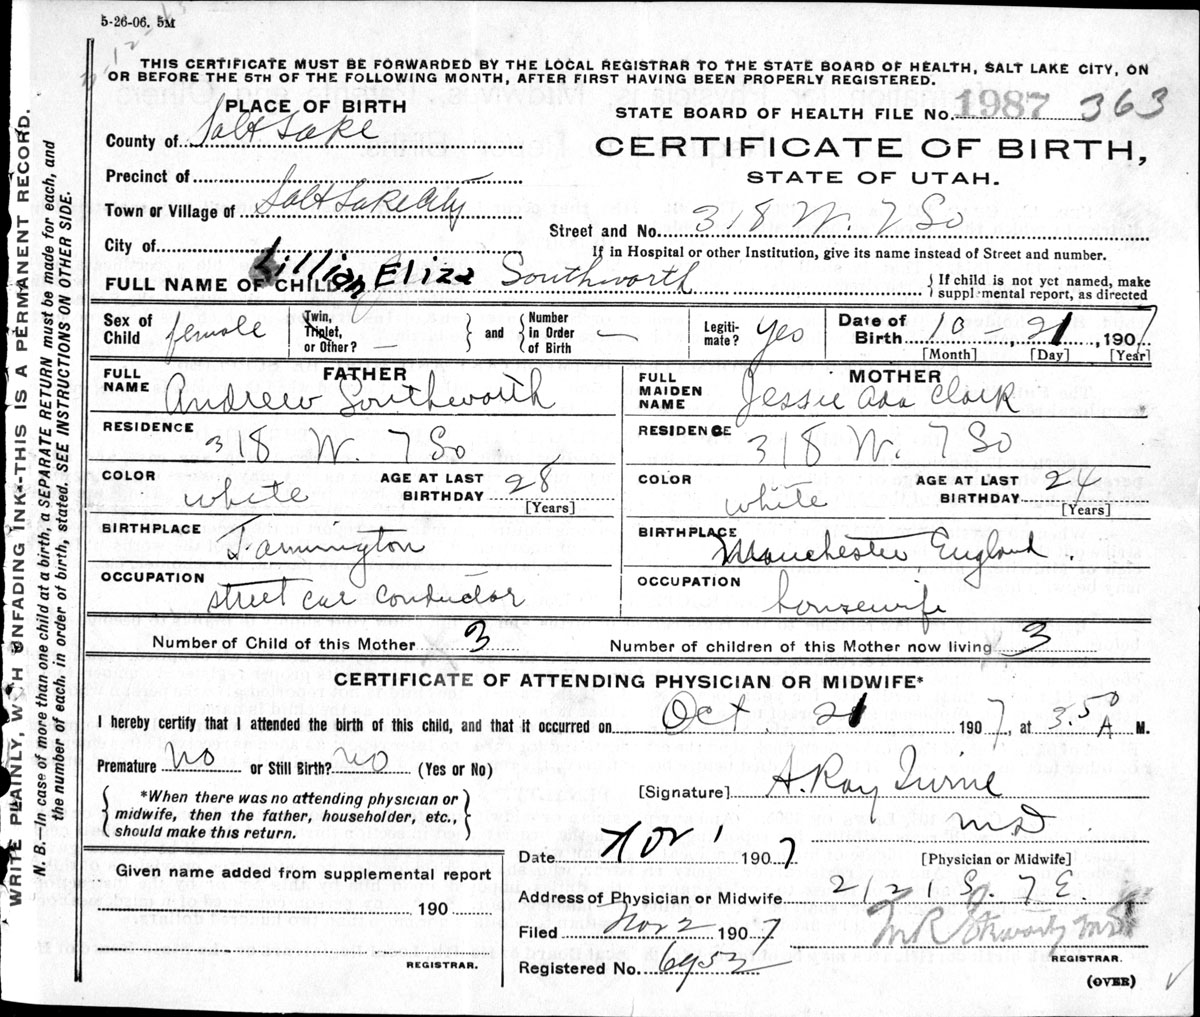 5-26-06. 5M
THIS CERTIFICATE MUST BE FORWARDED BY THE LOCAL REGISTRAR TO THE STATE BOARD OF HEALTH, SALT LAKE CITY, ON
OR BEFORE THE 5TH OF THE FOLLOWING MONTH, AFTER FIRST HAVING BEEN PROPERLY REGISTERED.
PLACE OF BIRTH
STATE BOARD OF HEALTH FILE No. 1987 363
County of Salt Lake
CERTIFICATE OF BIRTH,
STATE OF UTAH.
Precinct of
Town or Village of Salt Lake City
Street and No. 318 W. 7 So
City of
If in Hospital or other Institution, give its name instead of Street and number.
FULL NAME OF CHILD Lillian Eliza Southworth
{ If child is not yet named, make
supplemental report, as directed
Sex of Child female
Twin, Triplet, or Other? —
and
Number in Order of Birth —
Legiti-mate? Yes
Date of Birth 10, 21, 1907
[Month] [Day] [Year]
FATHER
FULL NAME Andrew Southworth
RESIDENCE 318 W. 7 So
COLOR white
AGE AT LAST BIRTHDAY 28
[Years]
BIRTHPLACE Farmington
OCCUPATION street car conductor
MOTHER
FULL MAIDEN NAME Jessie Ada Clark
RESIDENCE 318 W. 7 So
COLOR white
AGE AT LAST BIRTHDAY 24
[Years]
BIRTHPLACE Manchester, England
OCCUPATION housewife
Number of Child of this Mother 3
Number of children of this Mother now living 3
CERTIFICATE OF ATTENDING PHYSICIAN OR MIDWIFE*
I hereby certify that I attended the birth of this child, and that it occurred on Oct. 21 1907, at 3.50 A M.
Premature no or Still Birth? no (Yes or No)
*When there was no attending physician or
midwife, then the father, householder, etc.,
should make this return.
[Signature] A. Ray Irvine
MD
Date Nov 1 1907
[Physician or Midwife]
Given name added from supplemental report
190
REGISTRAR.
Address of Physician or Midwife 2121 S. 7 E.
Filed Nov 2 1907
REGISTRAR.
Registered No. 6952
(OVER)
WRITE PLAINLY, WITH UNFADING INK--THIS IS A PERMANENT RECORD.
N. B.—In case of more than one child at a birth, a SEPARATE RETURN must be made for each, and
the number of each. in order of birth, stated. SEE INSTRUCTIONS ON OTHER SIDE.